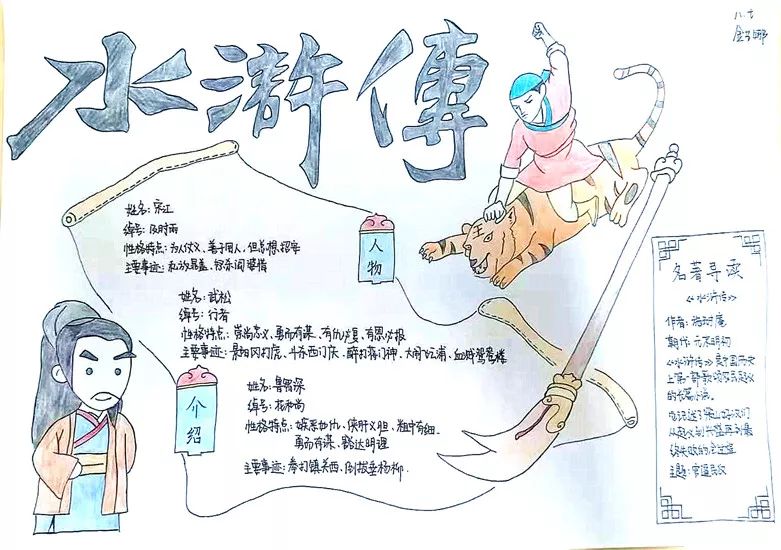 水滸傳
八.七
姓名:宋江
绰号:及时雨
性格特点:为人仗义、善于用人,但总想招安
主要事迹:私放晁盖、怒杀阎婆惜
人物
姓名:武松
绰号:行者
性格特点:崇尚忠义、勇而有谋、有仇必复、有恩必报
主要事迹:景阳冈打虎、斗杀西门庆、醉打蒋门神、大闹飞云浦、血溅鸳鸯楼
介绍
姓名:鲁智深
绰号:花和尚
性格特点:嫉恶如仇、侠肝义胆、粗中有细、
勇而有谋、豁达明理
主要事迹:拳打镇关西、倒拔垂杨柳.
名著导读
《水浒传》
作者:施耐庵
朝代:元末明初
《水浒传》是中国历史
上第一部歌颂农民起义
的长篇小说。
它记述了梁山好汉们
从起义到兴盛再到最
终失败的全过程
主题:官逼民反